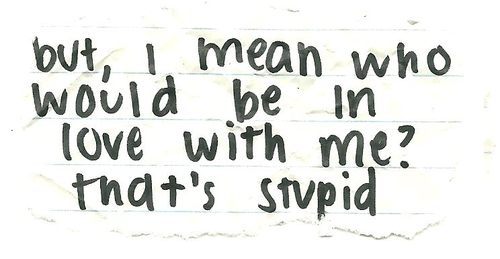 but, I mean who
would be in
love with me?
that's stupid